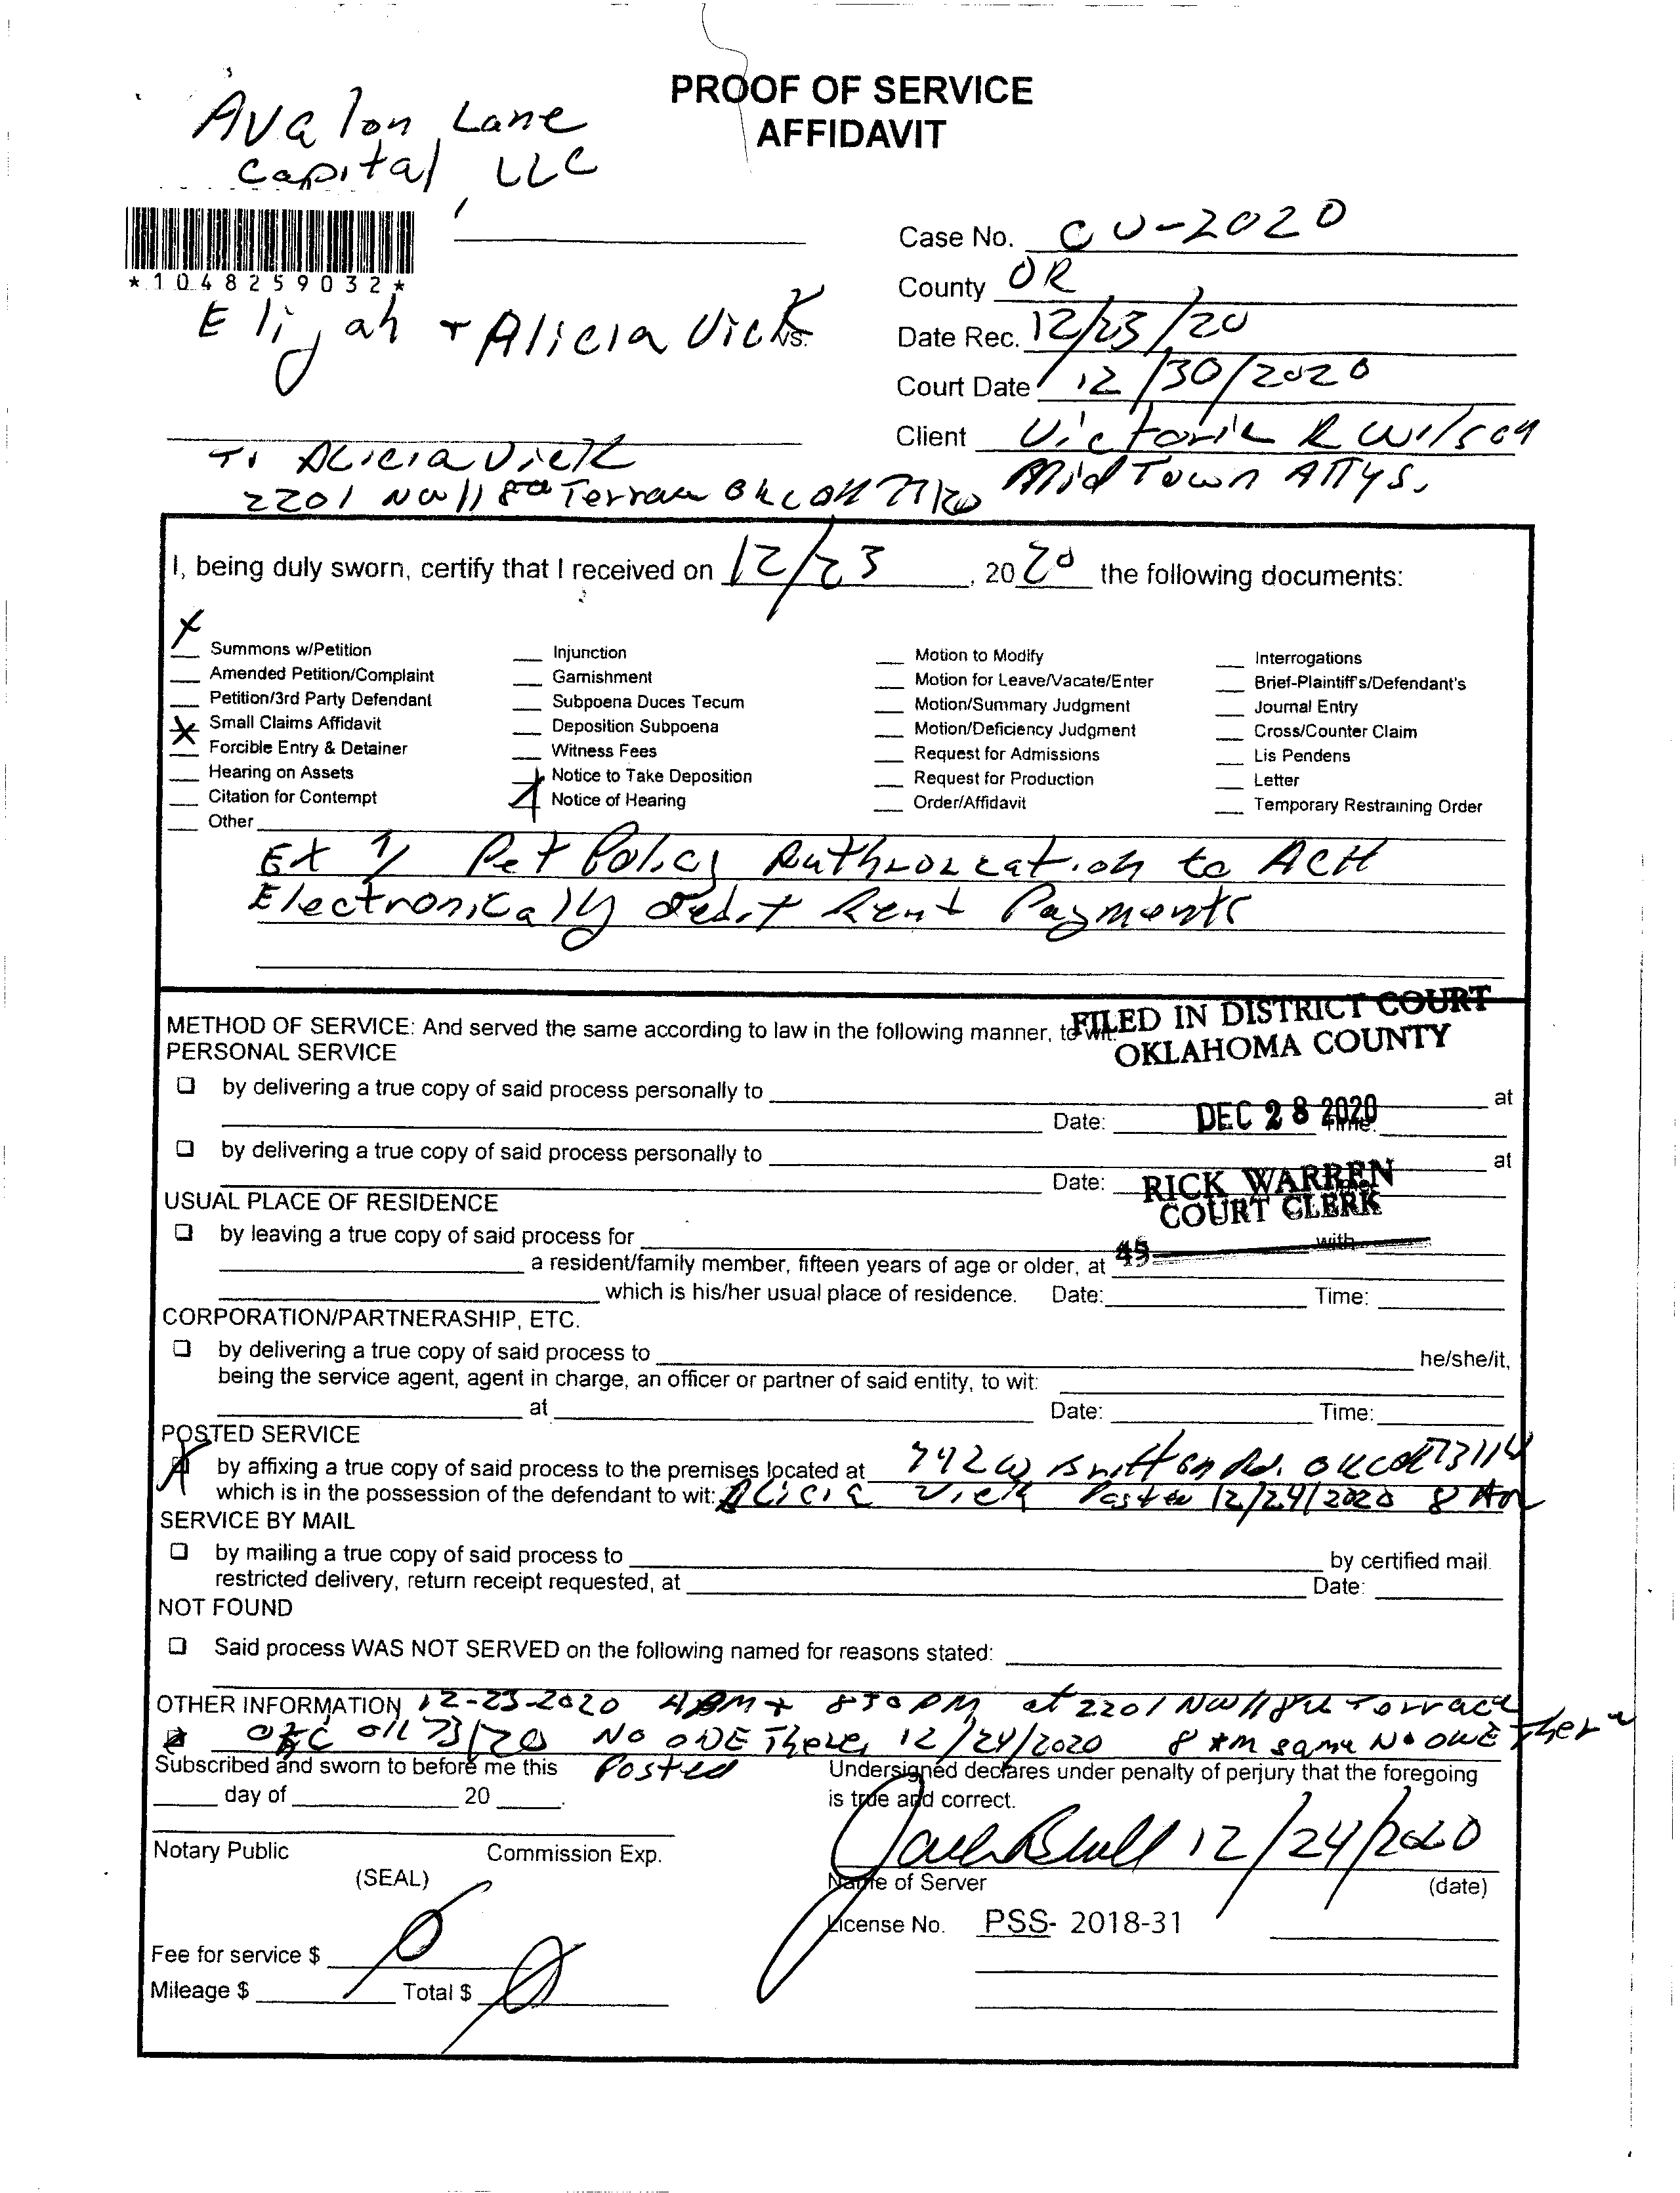 PROOF OF SERVICE
AFFIDAVIT
Avalon Lane
Capital, LLC
*1048259032*
Elijah + Alicia Vick
vs.
Case No. CV-2020
County OR
Date Rec. 12/23/20
Court Date 12/30/2020
Client Victoria R Wilson
MidTown Attys.
To Alicia Vick
2201 NW 118th Terrace OKC OK 73120
I, being duly sworn, certify that I received on 12/23, 2020 the following documents:
X Summons w/Petition
Amended Petition/Complaint
Petition/3rd Party Defendant
X Small Claims Affidavit
Forcible Entry & Detainer
Hearing on Assets
Citation for Contempt
Other
Injunction
Garnishment
Subpoena Duces Tecum
Deposition Subpoena
Witness Fees
Notice to Take Deposition
Notice of Hearing
Motion to Modify
Motion for Leave/Vacate/Enter
Motion/Summary Judgment
Motion/Deficiency Judgment
Request for Admissions
Request for Production
Order/Affidavit
Interrogations
Brief-Plaintiff's/Defendant's
Journal Entry
Cross/Counter Claim
Lis Pendens
Letter
Temporary Restraining Order
Ex 1, Pet Policy Authrozation to ACH
Electronically Debit Rent Payments
METHOD OF SERVICE: And served the same according to law in the following manner, to wit:
FILED IN DISTRICT COURT
OKLAHOMA COUNTY
PERSONAL SERVICE
by delivering a true copy of said process personally to
at
Date: Time:
DEC 28 2020
by delivering a true copy of said process personally to
at
Date:
RICK WARREN
COURT CLERK
USUAL PLACE OF RESIDENCE
by leaving a true copy of said process for with
45
a resident/family member, fifteen years of age or older, at
which is his/her usual place of residence. Date: Time:
CORPORATION/PARTNERASHIP, ETC.
by delivering a true copy of said process to he/she/it,
being the service agent, agent in charge, an officer or partner of said entity, to wit:
at Date: Time:
POSTED SERVICE
by affixing a true copy of said process to the premises located at 742 W Britton Rd. OKC OK 73114
which is in the possession of the defendant to wit: Alicia Vick Posted 12/24/2020 8 AM
SERVICE BY MAIL
by mailing a true copy of said process to by certified mail.
restricted delivery, return receipt requested, at Date:
NOT FOUND
Said process WAS NOT SERVED on the following named for reasons stated:
OTHER INFORMATION 12-23-2020 4PM + 830PM at 2201 NW 118th Terrace
OKC OK 73120 No ONE There, 12/24/2020 8 AM same No ONE There
Posted
Subscribed and sworn to before me this
day of 20 .
Notary Public Commission Exp.
(SEAL)
Undersigned declares under penalty of perjury that the foregoing
is true and correct.
12/24/2020
Name of Server (date)
License No. PSS- 2018-31
Fee for service $
Mileage $ Total $